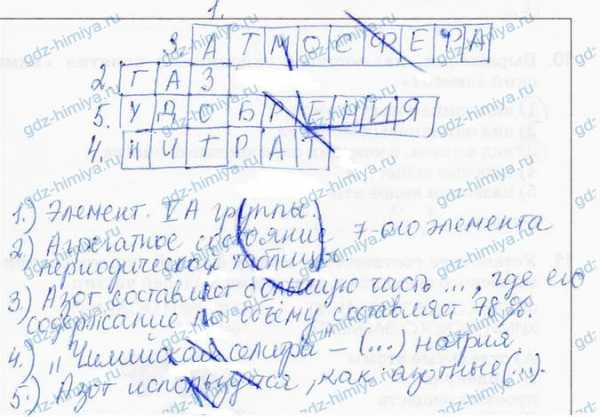 1.
3. АТМОСФЕРА
2. ГАЗ
5. УДОБРЕНИЯ
4. НИТРАТ
1.) Элемент VA группы.
2) Агрегатное состояние 7-ого элемента
периодической таблицы.
3) Азот составляет большую часть ..., где его
содержание по объёму составляет 78%.
4.) "Чилийская селитра – (...) натрия
5.) Азот используется, как азотные (...).
gdz-himiya.ru